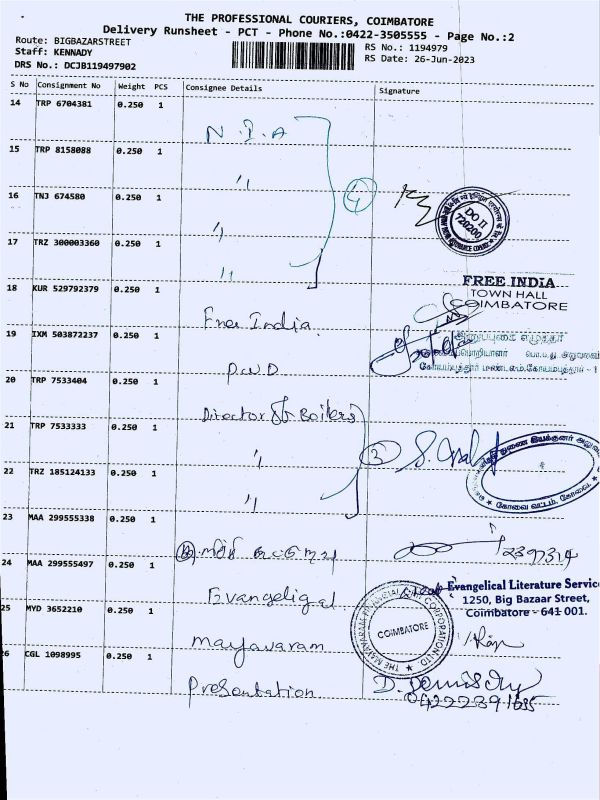 THE PROFESSIONAL COURIERS, COIMBATORE
Delivery Runsheet - PCT - Phone No.:0422-3505555 - Page No.:2
Route: BIGBAZARSTREET
Staff: KENNADY
DRS No.: DCJB119497902
RS No.: 1194979
RS Date: 26-Jun-2023
S No Consignment No Weight PCS Consignee Details Signature
14 TRP 6704381 0.250 1
N.I.A
15 TRP 8158088 0.250 1
"
4
16 TNJ 674580 0.250 1
"
DO II
720200
17 TRZ 300003360 0.250 1
"
18 KUR 529792379 0.250 1
Free India
FREE INDIA
TOWN HALL
COIMBATORE
19 IXM 503872237 0.250 1
P.W.D
கோயம்புத்தூர் மண்டலம்,கோயம்புத்தூர் - 1
20 TRP 7533404 0.250 1
Director of Boilers
21 TRP 7533333 0.250 1
"
3
22 TRZ 185124133 0.250 1
"
கோவை வட்டம், கோவை
23 MAA 299555338 0.250 1
2397314
24 MAA 299555497 0.250 1
Evangeligal
Evangelical Literature Service
1250, Big Bazaar Street,
Coimbatore - 641 001.
25 MYD 3652210 0.250 1
Mayavaram
COIMBATORE
26 CGL 1098995 0.250 1
Presentation